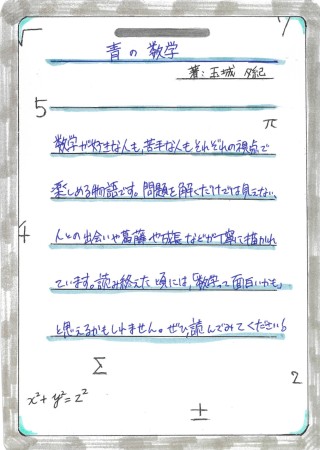 青の数学
著:王城 夕紀
5
π
数学が好きな人も、苦手な人もそれぞれの視点で
楽しめる物語です。問題を解くだけでは見えない、
人との出会いや葛藤や成長などが丁寧に描かれ
4
ています。読み終えた頃には、"数学って面白いかも"
と思えるかもしれません。ぜひ読んでみてください。
Σ
2
x²+y²=z²
±